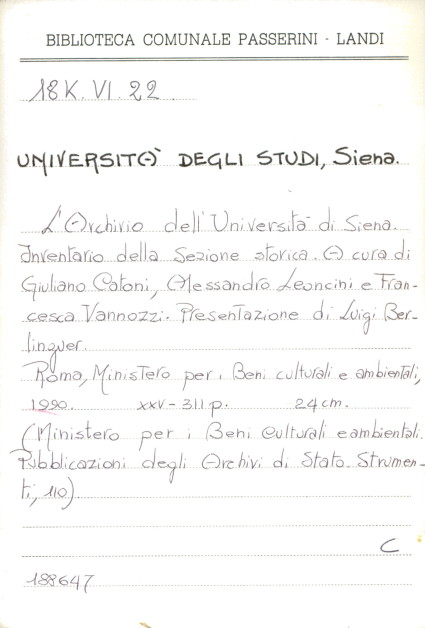 BIBLIOTECA COMUNALE PASSERINI - LANDI
18K.VI.22
UNIVERSITÀ DEGLI STUDI, Siena.
L'Archivio dell'Università di Siena.
Inventario della Sezione storica. A cura di
Giuliano Catoni, Alessandro Leoncini e Fran-
cesca Vannozzi. Presentazione di Luigi Ber-
linguer.
Roma, Ministero per i Beni culturali e ambientali,
1990. xxv-311 p. 24 cm.
(Ministero per i Beni culturali e ambientali.
Pubblicazioni degli Archivi di Stato. Strumen-
ti, 110)
C
188647